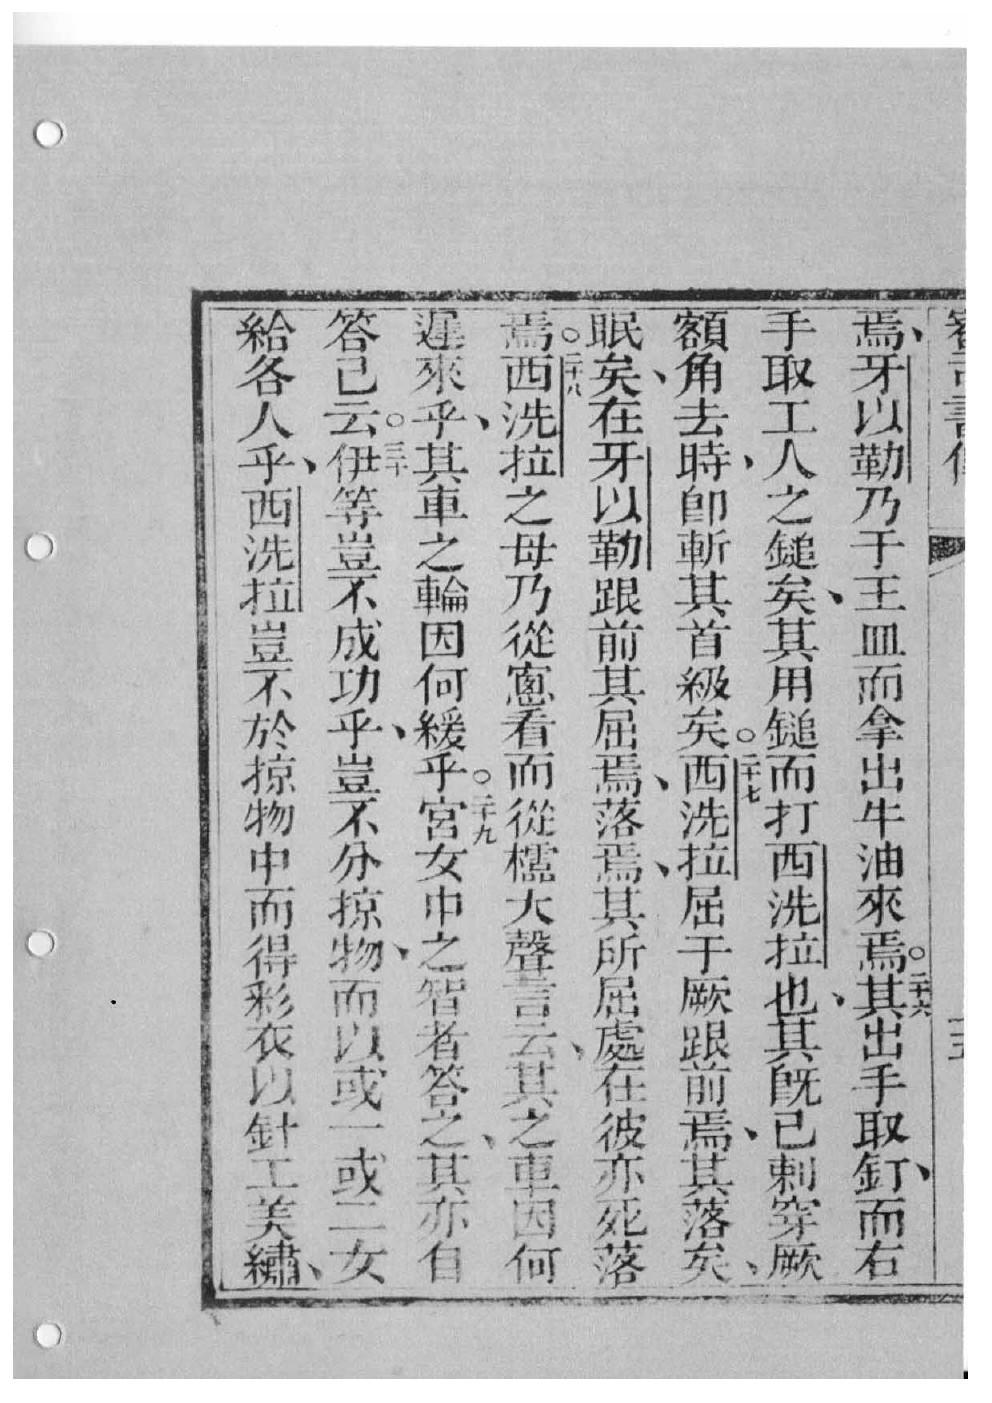 審司書傳
十五
焉、牙以勒乃于王皿而拿出牛油來焉。二十六其出手取釘、而右
手取工人之鎚矣、其用鎚而打西洗拉也、其旣已刺穿厥
額角去時、卽斬其首級矣。二十七西洗拉屈于厥跟前焉、其落矣、
眠矣、在牙以勒跟前其屈焉、落焉、其所屈處在彼亦死落
焉。二十八西洗拉之母乃從窻看而從櫺大聲言云、其之車因何
遲來乎、其車之輪因何緩乎。二十九宮女中之智者答之、其亦自
答己云。三十伊等豈不成功乎、豈不分掠物、而以或一或二女
給各人乎、西洗拉豈不於掠物中而得彩衣以針工美繡、